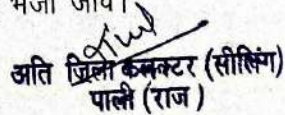 भेजा जावे।
अति जिला कलक्टर (सीलिंग)
पाली (राज)